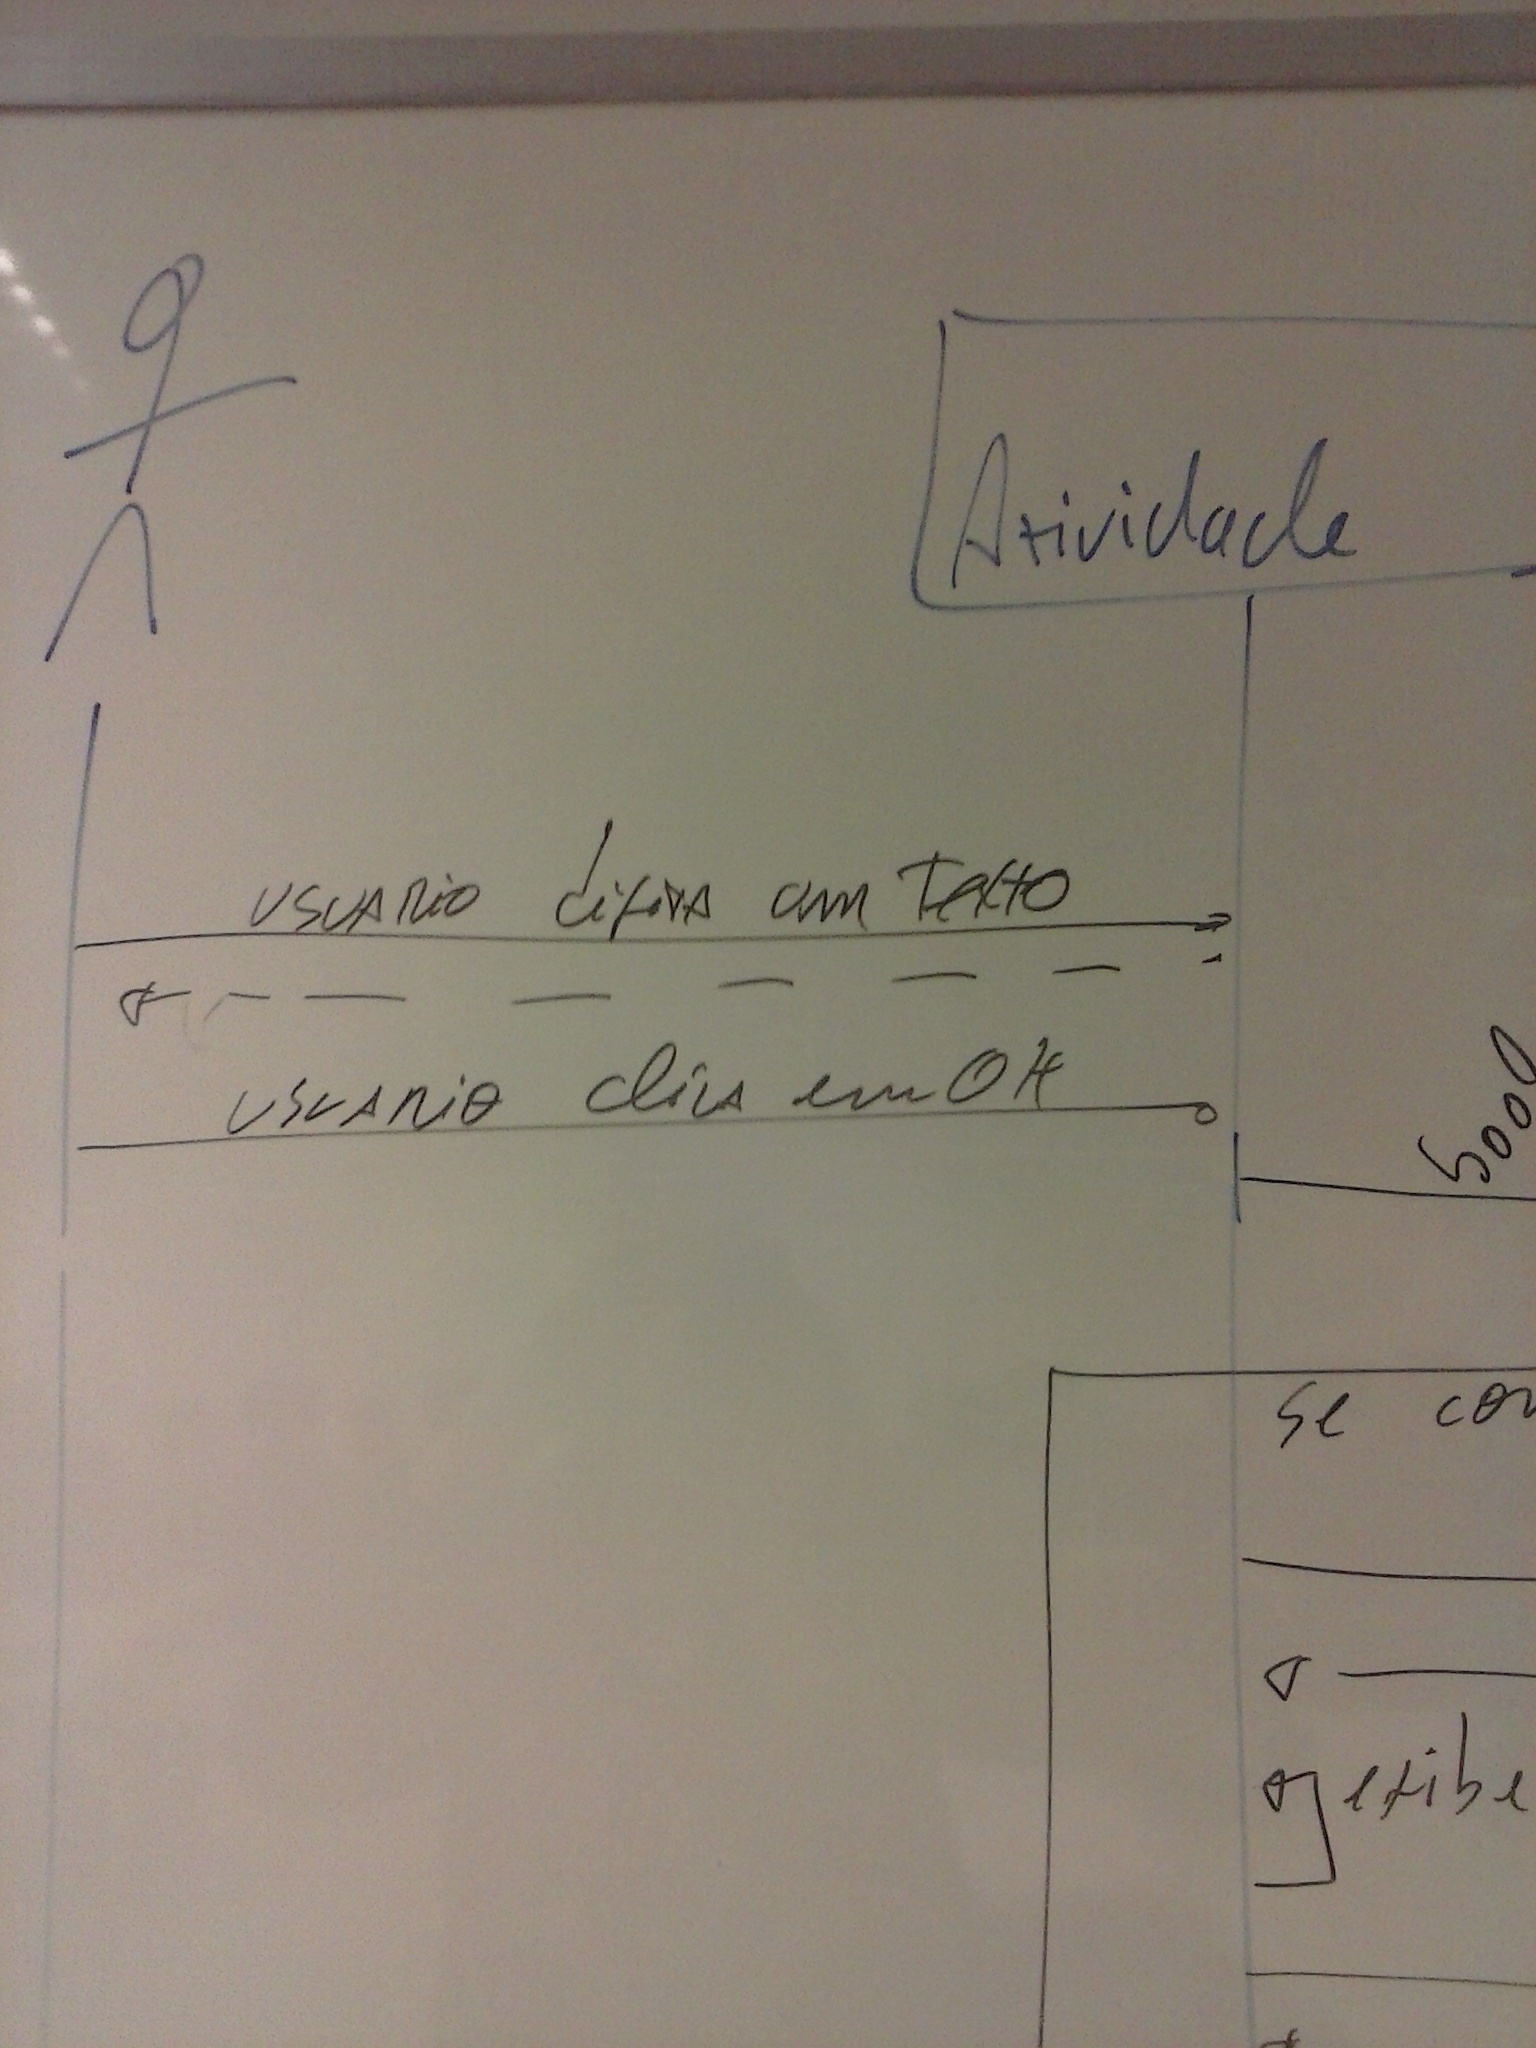 Atividade
USUARIO digita um Texto
USUARIO clica em OK
bool
se con
exibe